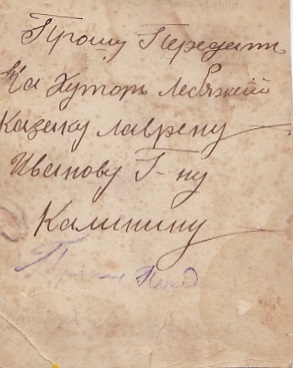 Прошу Передать
На Хуторъ Лебяжій
Казаку Лаврену
Иванову Г-ну
Калинину
Прошу Перед